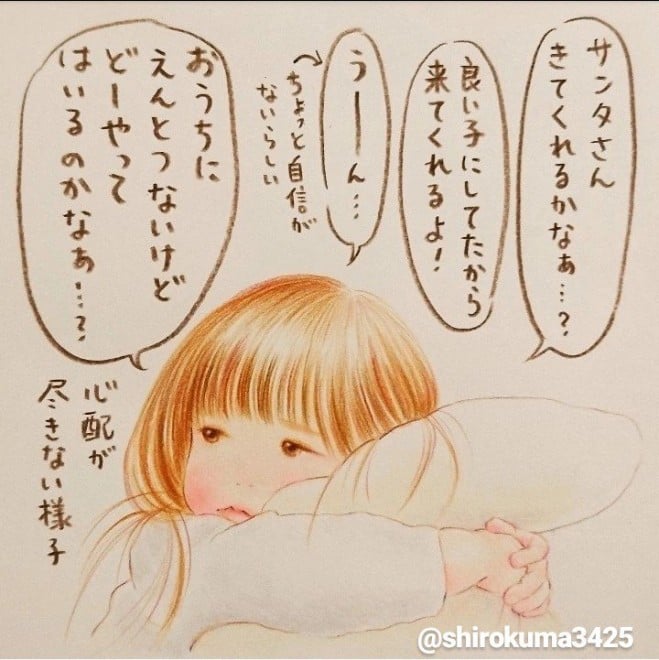 サンタさん
きてくれるかなぁ…?
良い子にしてたから
来てくれるよ!
うーーん…
ちょっと自信が
ないらしい
おうちに
えんとつないけど
どーやって
はいるのかなぁ…?
心配が
尽きない様子
@shirokuma3425